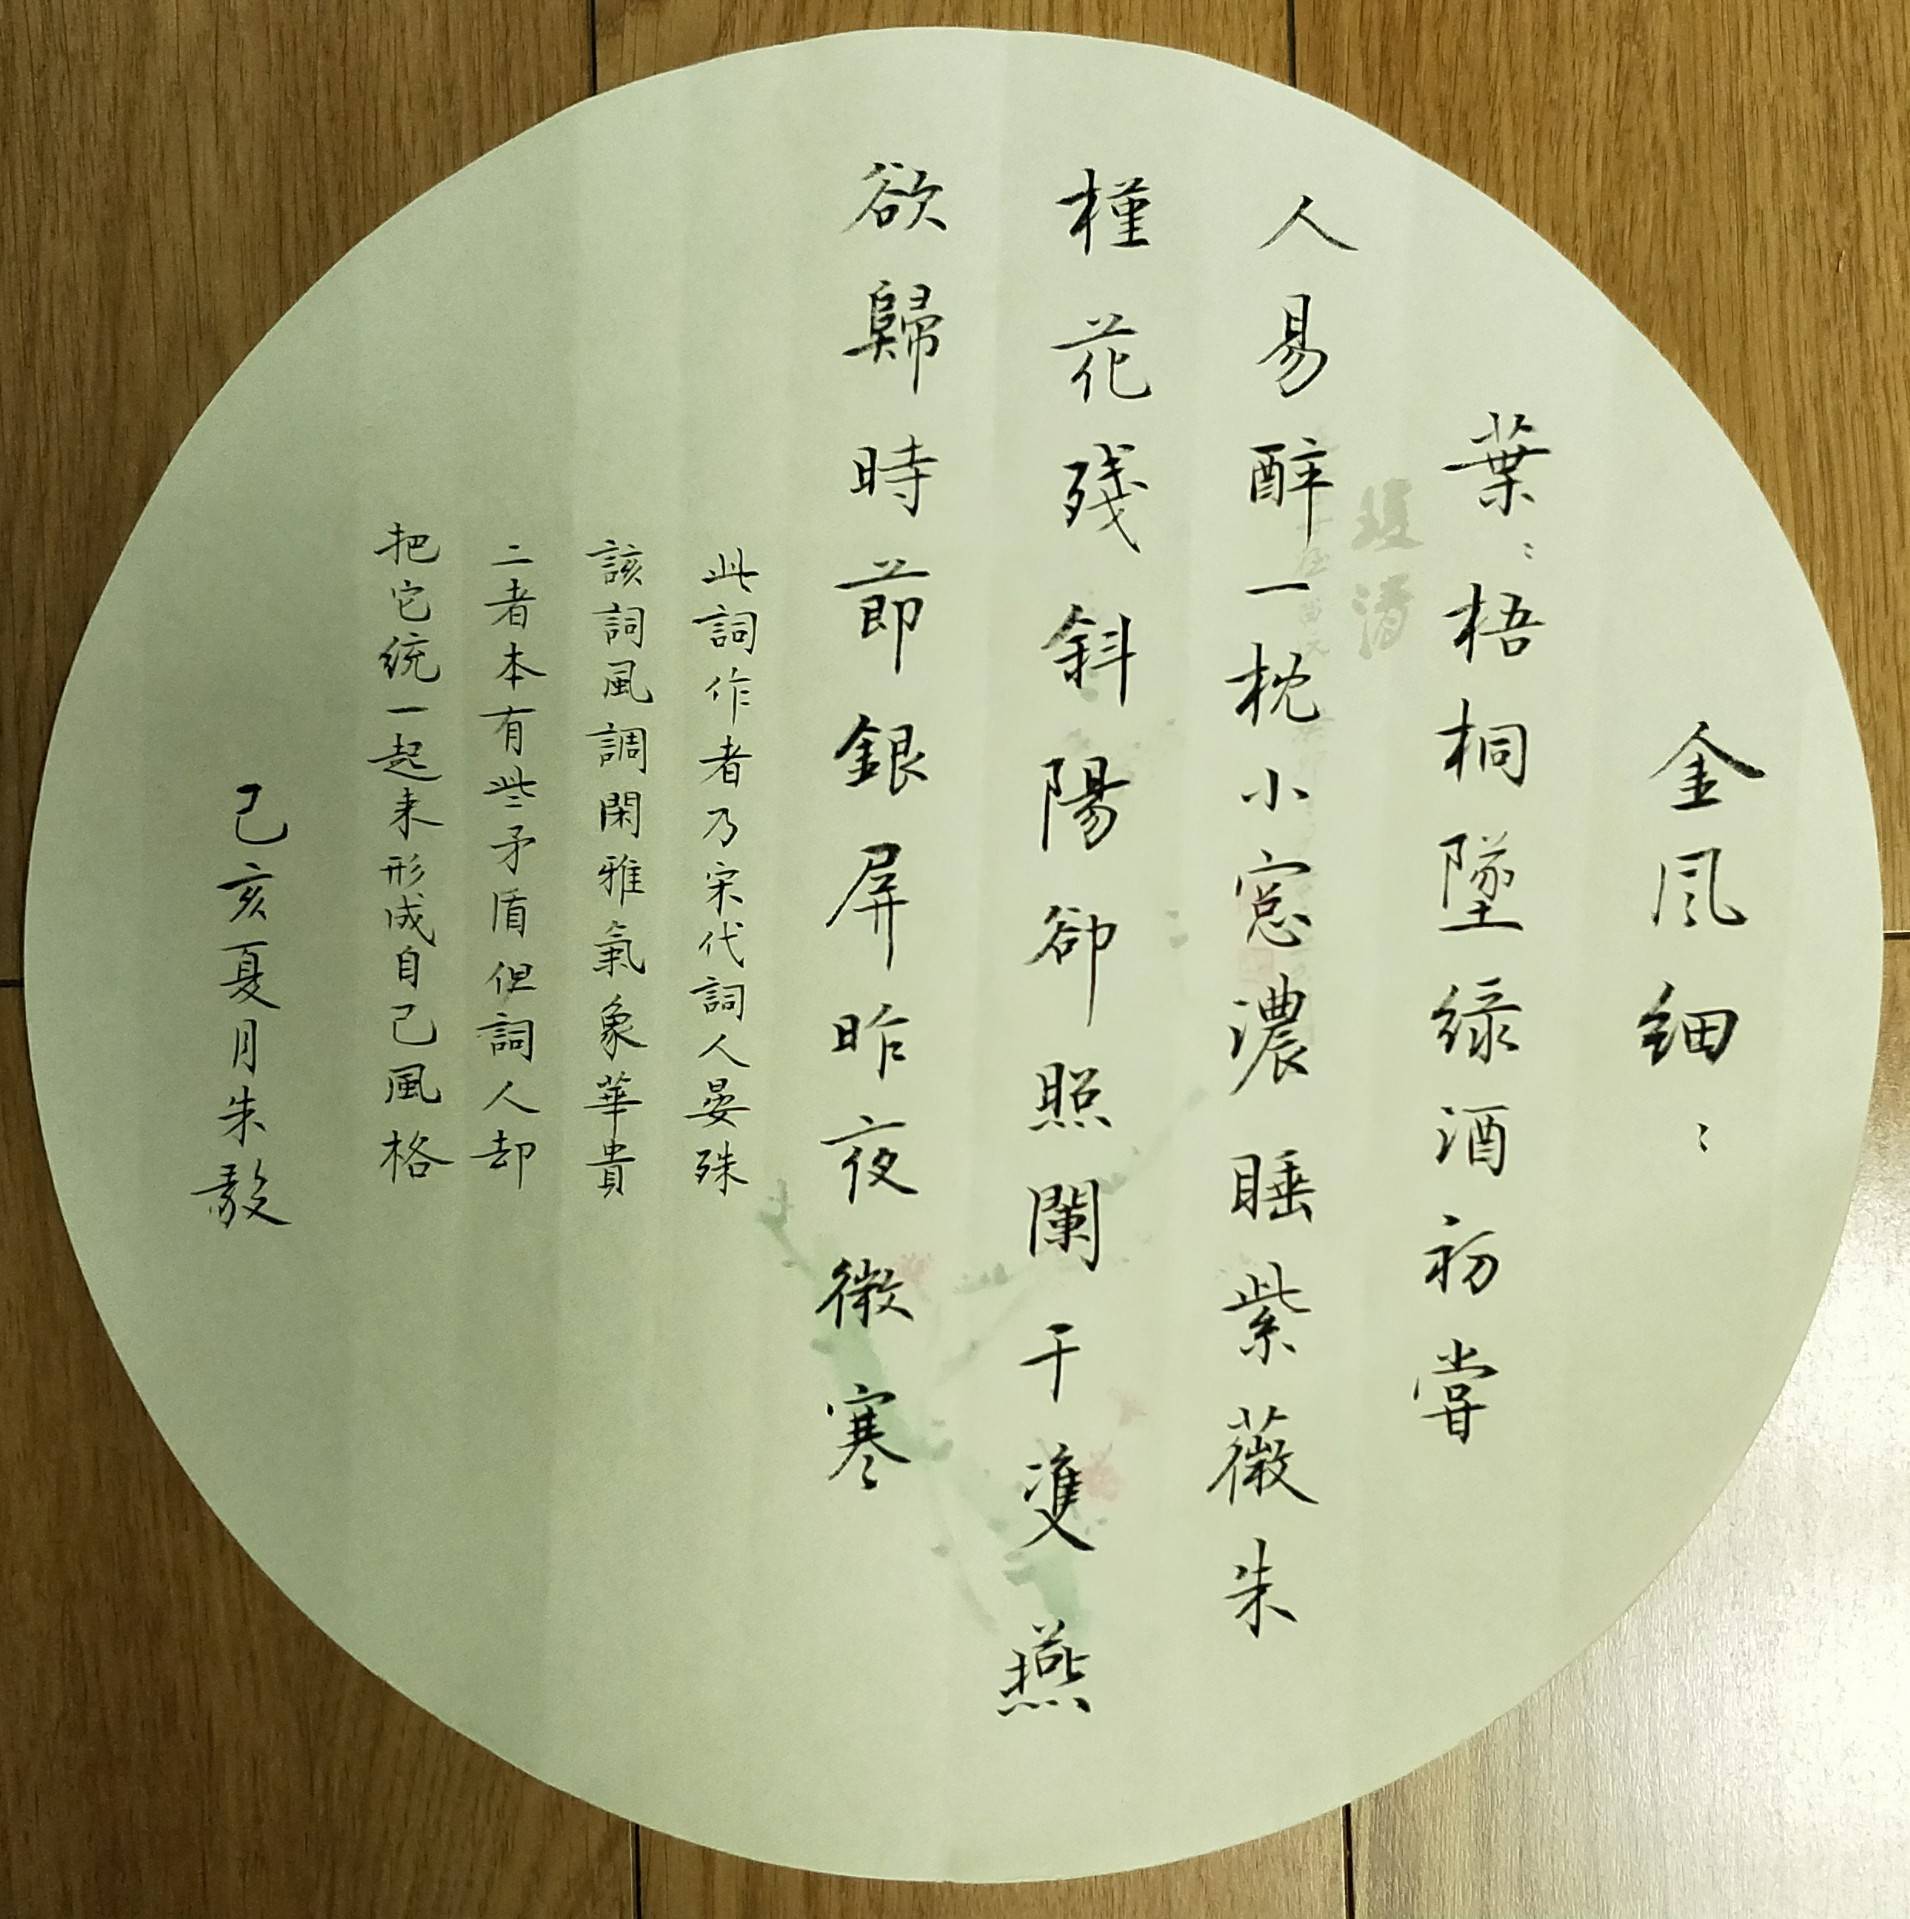 金風細〻
葉〻梧桐墜綠酒初嘗
人易醉一枕小窓濃睡紫薇朱
槿花残斜陽卻照闌干雙燕
欲歸時節銀屏昨夜微寒
此詞作者乃宋代詞人晏殊
該詞風調閑雅氣象華貴
二者本有些矛盾但詞人却
把它统一起来形成自己風格
己亥夏月朱毅